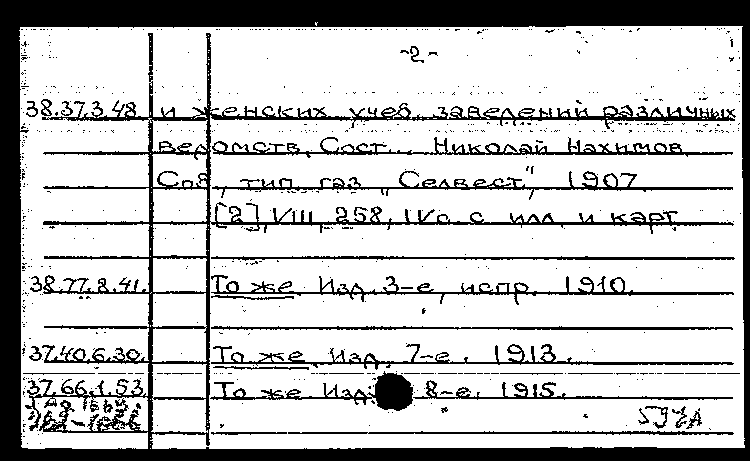 -2-
38.37.3.48 и женских учеб. заведений различных
ведомств. Сост. Николай Нахимов.
Спб., тип. газ. „Сельвест.", 1907.
[2], VIII, 258, IV с. с илл. и карт.
38.77.8.41. То же. Изд. 3-е, испр. 1910.
37.40.6.30. То же. Изд. 7-е. 1913.
37.66.1.53. То же. Изд. 8-е. 1915.